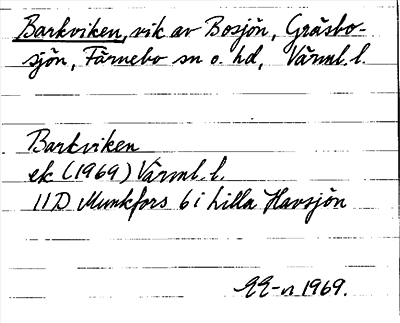 Barkviken, vik av Bosjön, Gräsbo-
sjön, Färnebo sn o. hd, Värml. l.
Barkviken
ek (1969) Värml. l.
11D Munkfors 6 i Lilla Havsjön
EE-n 1969.